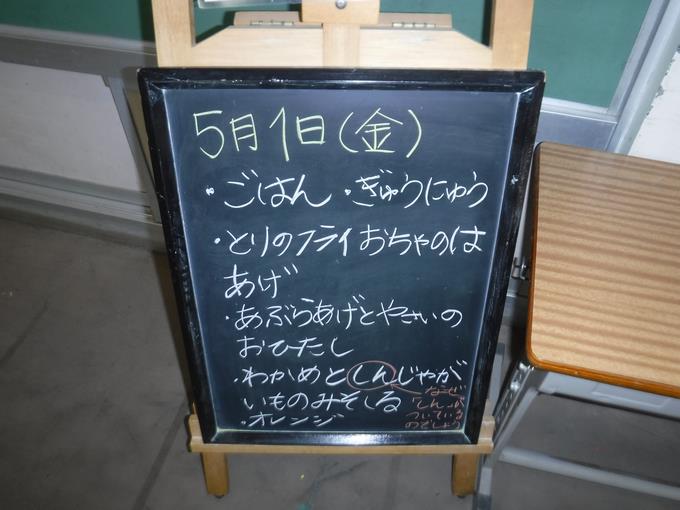 5月1日(金)
・ごはん ・ぎゅうにゅう
・とりのフライおちゃのは
あげ
・あぶらあげとやさいの
おひたし
・わかめとしんじゃが
いものみそしる
・オレンジ
なぜ
「しん」が
ついている
のでしょう